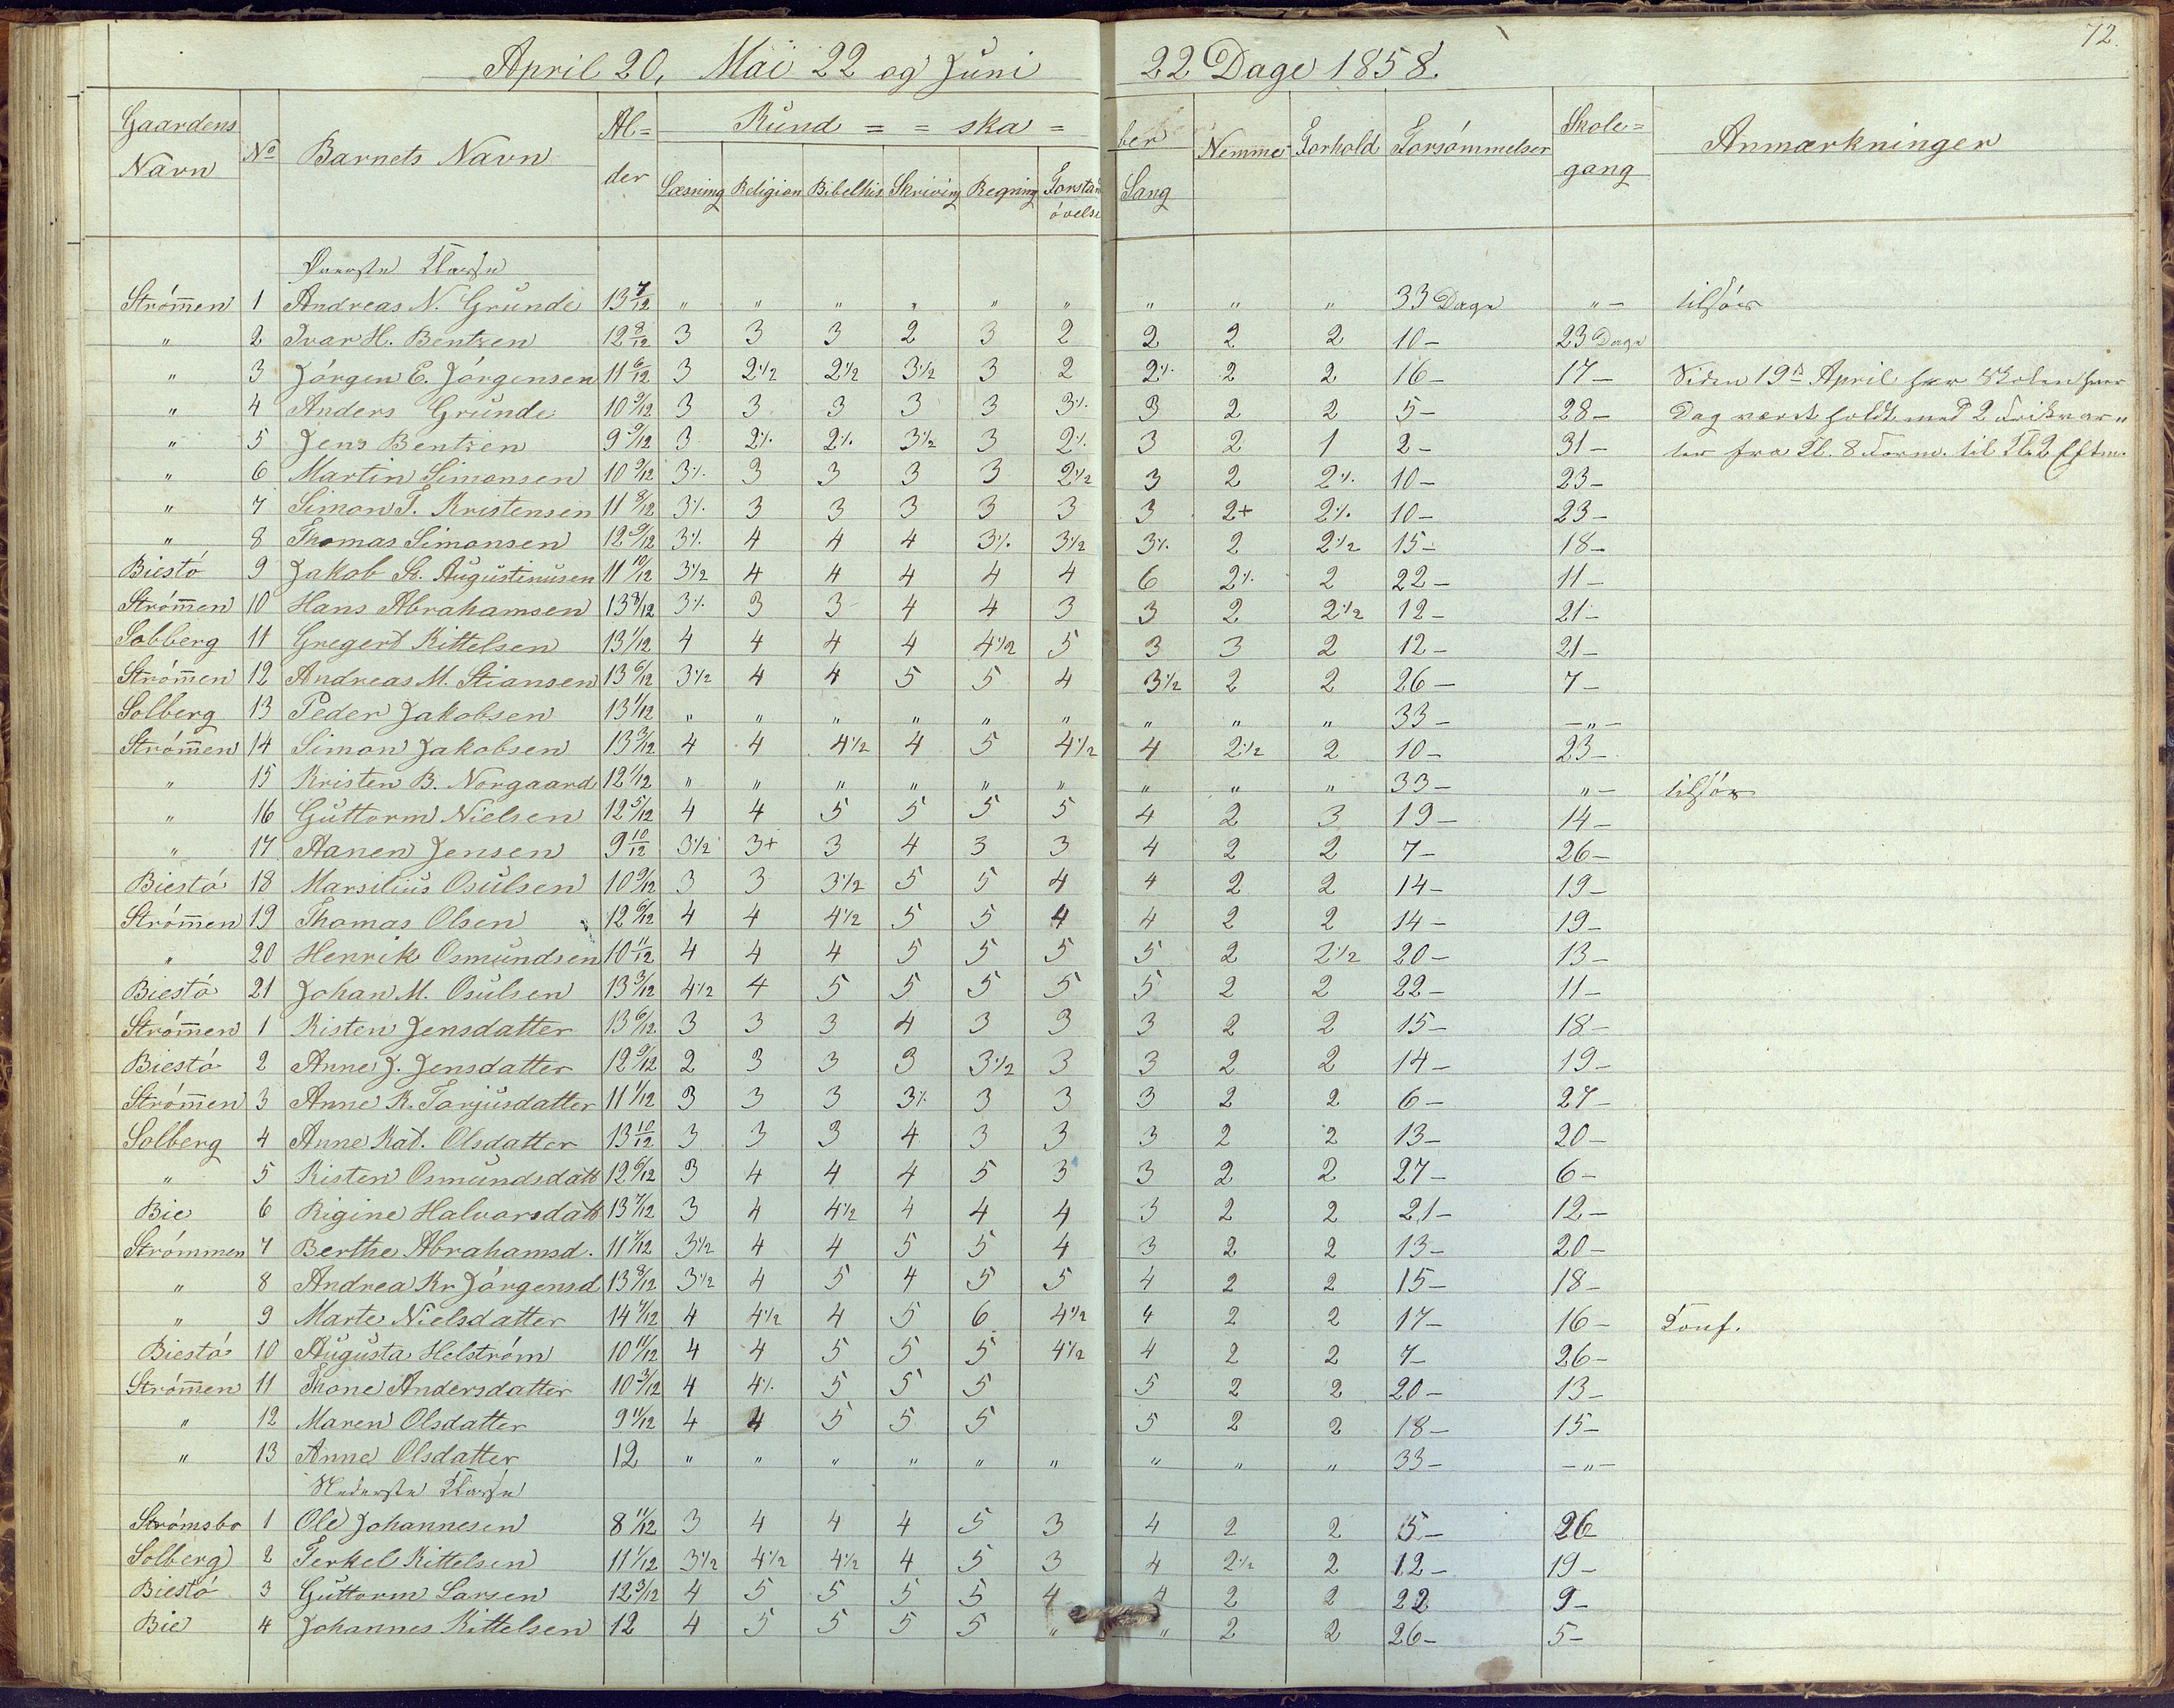 72.
April 20, Mai 22 og Juni 22 Dage 1858.
Gaardens Navn No Barnets Navn Al=der Kund = = ska = ber Nemme Forhold Forsømmelser Skole=gang Anmærkninger
Læsning Religion Bibelhis Skriving Regning Forstan øvelse Sang
Øverste Klasse
Strømmen 1 Andreas N. Grunde 13 7/12 " " " " " " " " " 33 Dage "- tilsøes
" 2 Ivar H. Bentzen 12 8/12 3 3 3 2 3 2 2 2 2 10- 23 Dage
" 3 Jørgen E. Jørgensen 11 6/12 3 2 1/2 2 1/2 3 1/2 3 2 2% 2 2 16- 17- Siden 19de April har Skolen hver
" 4 Anders Grunde 10 9/12 3 3 3 3 3 3% 3 2 2 5- 28- Dag været holdt med 2 Frikvar"
" 5 Jens Bentzen 9 9/12 3 2% 2% 3 1/2 3 2% 3 2 1 2- 31- ter fra Kl. 8 Form. til Kl. 2 Eftm.
" 6 Martin Simonsen 10 9/12 3% 3 3 3 3 2 1/2 3 2 2% 10- 23-
" 7 Simon T. Kristensen 11 8/12 3% 3 3 3 3 3 3 2+ 2% 10- 23-
" 8 Thomas Simonsen 12 9/12 3% 4 4 4 3% 3 1/2 3% 2 2 1/2 15- 18-
Biestø 9 Jakob S. Augustinusen 11 10/12 3 1/2 4 4 4 4 4 6 2% 2 22- 11-
Strømmen 10 Hans Abrahamsen 13 8/12 3% 3 3 4 4 3 3 2 2 1/2 12- 21-
Solberg 11 Gregert Kittelsen 13 1/12 4 4 4 4 4 1/2 5 3 3 2 12- 21-
Strømmen 12 Andreas M. Stiansen 13 6/12 3 1/2 4 4 5 5 4 3 1/2 2 2 26- 7-
Solberg 13 Peder Jakobsen 13 1/12 " " " " " " " " " 33- -"-
Strømmen 14 Simon Jakobsen 13 3/12 4 4 4 1/2 4 5 4 1/2 4 2 1/2 2 10- 23-
" 15 Kristen B. Norgaard 12 1/12 " " " " " " " " " 33- "- tilsøes
" 16 Guttorm Nielsen 12 5/12 4 4 5 5 5 5 4 2 3 19- 14-
" 17 Aanen Jensen 9 10/12 3 1/2 3+ 3 4 3 3 4 2 2 7- 26-
Biestø 18 Marsilius Osulsen 10 9/12 3 3 3 1/2 5 5 4 4 2 2 14- 19-
Strømmen 19 Thomas Olsen 12 6/12 4 4 4 1/2 5 5 4 4 2 2 14- 19-
" 20 Henrik Osmundsen 10 11/12 4 4 4 5 5 5 5 2 2 1/2 20- 13-
Biestø 21 Johan M. Osulsen 13 3/12 4 1/2 4 5 5 5 5 5 2 2 22- 11-
Strømmen 1 Kisten Jensdatter 13 6/12 3 3 3 4 3 3 3 2 2 15- 18-
Biestø 2 Anne J. Jensdatter 12 9/12 2 3 3 3 3 1/2 3 3 2 2 14- 19-
Strømmen 3 Anne K. Tarjusdatter 11 1/12 3 3 3 3% 3 3 3 2 2 6- 27-
Solberg 4 Anne Kat. Olsdatter 13 10/12 3 3 3 4 3 3 3 2 2 13- 20-
" 5 Kisten Osmundsdatt 12 6/12 3 4 4 4 5 3 3 2 2 27- 6-
Bie 6 Rigine Halvorsdatt 13 7/12 3 4 4 1/2 4 4 4 3 2 2 21- 12-
Strømmen 7 Berthe Abrahamsd. 11 7/12 3 1/2 4 4 5 5 4 3 2 2 13- 20-
" 8 Andrea Kr. Jørgensd 13 8/12 3 1/2 4 5 4 5 5 4 2 2 15- 18-
" 9 Marte Nielsdatter 14 7/12 4 4 1/2 4 5 6 4 1/2 4 2 2 17- 16- Conf.
Biestø 10 Augusta Helstrøm 10 11/12 4 4 5 5 5 4 1/2 4 2 2 7- 26-
Strømmen 11 Thone Andersdatter 10 3/12 4 4% 5 5 5 5 2 2 20- 13-
" 12 Maren Olsdatter 9 11/12 4 4 5 5 5 5 2 2 18- 15-
" 13 Anne Olsdatter 12 " " " " " " " " " 33- -"-
Nederste Klasse
Strømsbo 1 Ole Johannesen 8 11/12 3 4 4 4 5 3 4 2 2 5- 26-
Solberg 2 Terkel Kittelsen 11 1/12 3 1/2 4 1/2 4 1/2 4 5 3 4 2 1/2 2 12- 19-
Biestø 3 Guttorm Larsen 12 3/12 4 5 5 5 5 4 4 2 2 22 9-
Bie 4 Johannes Kittelsen 12 4 5 5 5 5 " " 2 2 26- 5-